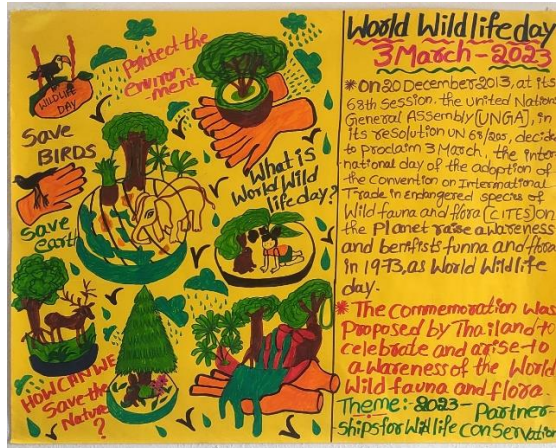 WILDLIFE
DAY
Protect the
environ
ment
Save
BIRDS
Save
earth
What is
World Wild
life day?
HOW CAN WE
Save the
Nature
?
World Wildlife day
3 March - 2023
* On 20 December 2013, at its
68th Session, the united Nation
General Assembly [UNGA], in
its resolution UN 68/205, decide
to proclaim 3 March, the inter
national day of the adoption of
the Convention on International
Trade in endangered species of
Wild fauna and flora [CITES] on
the Planet raise awareness
and benifists funna and flora
in 1973, as World Wildlife
day.
* The commemoration was
Proposed by Thailand to
celebrate and arise to
a wareness of the World
Wild fauna and flora.
Theme:- 2023 - Partner
ships for Wildlife conservatio